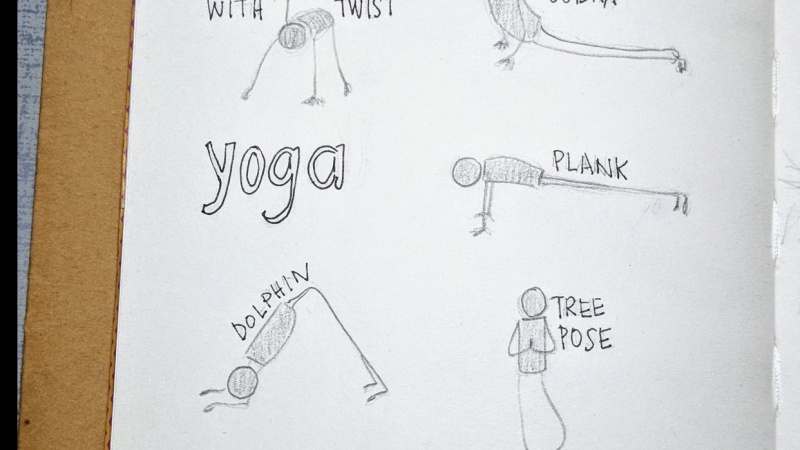 WITH TWIST
yoga
PLANK
DOLPHIN
TREE
POSE